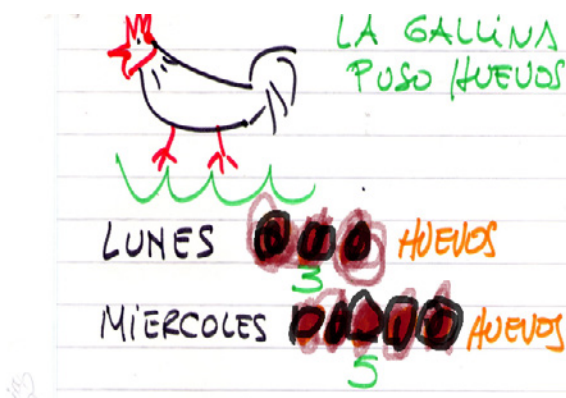 LA GALLINA
PUSO HUEVOS
LUNES HUEVOS
3
MIERCOLES HUEVOS
5